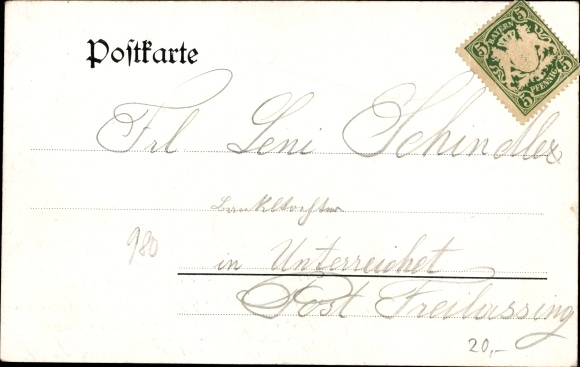 Postkarte
5 BAYERN 5
5 PFENNIG 5
Frl Leni Schindler
in Unterreichet
Post Freilassing
980
20,-